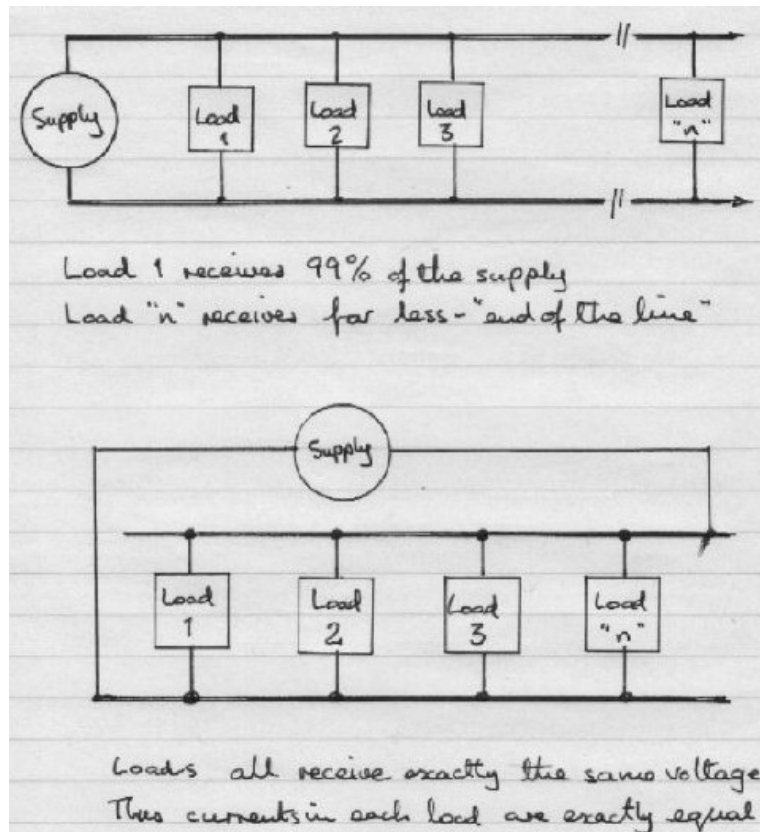 Supply
Load
1
Load
2
Load
3
Load
"n"
Load 1 receives 99% of the supply
Load "n" receives far less - "end of the line"
Supply
Load
1
Load
2
Load
3
Load
"n"
Loads all receive exactly the same voltage
Thus currents in each load are exactly equal